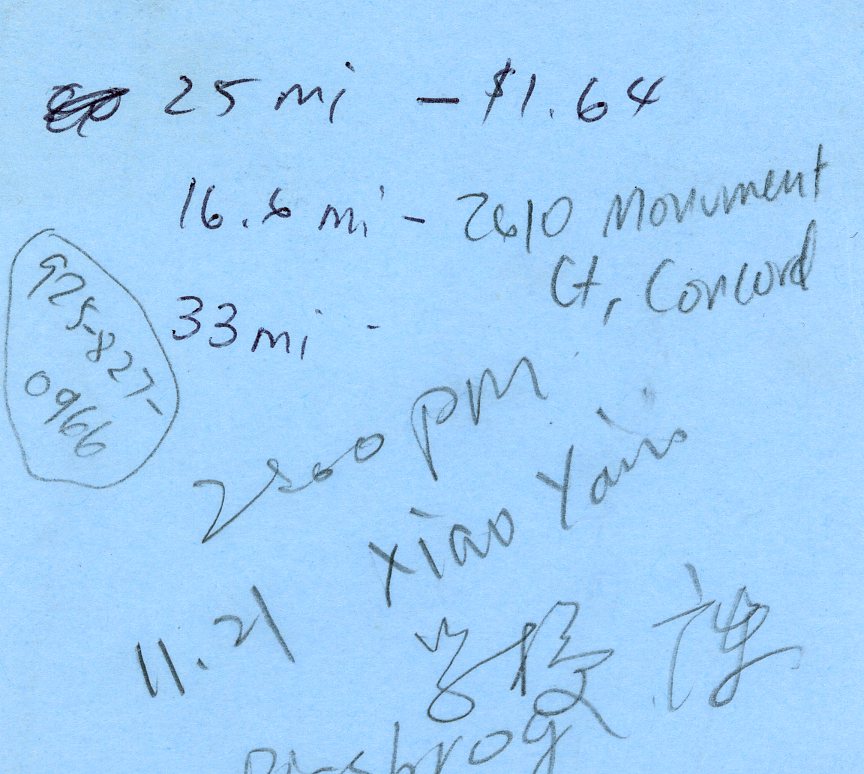 25 mi - $1.64
16.6 mi - 2610 Monument
Ct, Concord
33 mi -
925-827-
0966
2:00 pm
Xiao Yan
11.21
学校